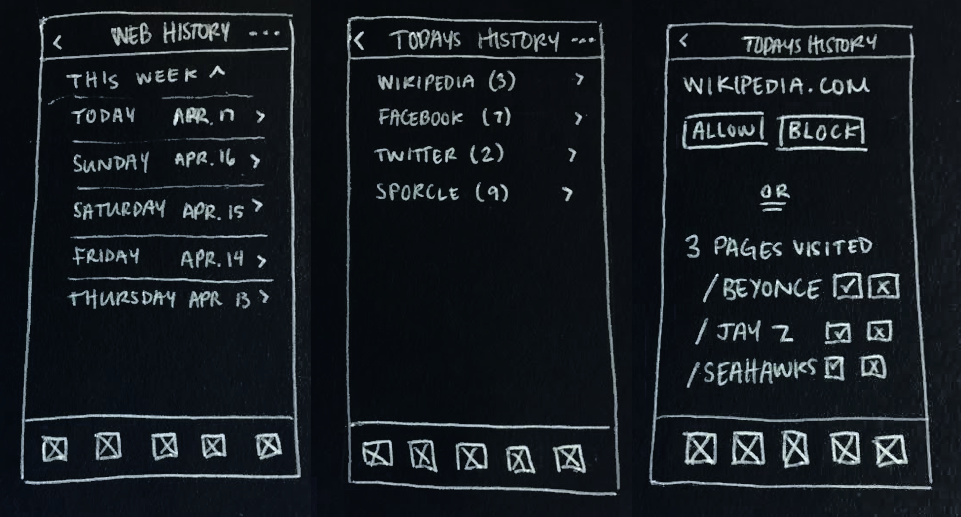 < WEB HISTORY ...
THIS WEEK ^
TODAY APR. 17 >
SUNDAY APR. 16 >
SATURDAY APR. 15 >
FRIDAY APR. 14 >
THURSDAY APR 13 >
< TODAYS HISTORY ...
WIKIPEDIA (3) >
FACEBOOK (7) >
TWITTER (2) >
SPORCLE (9) >
< TODAYS HISTORY
WIKIPEDIA.COM
ALLOW BLOCK
OR
3 PAGES VISITED
/BEYONCE
/JAY Z
/SEAHAWKS